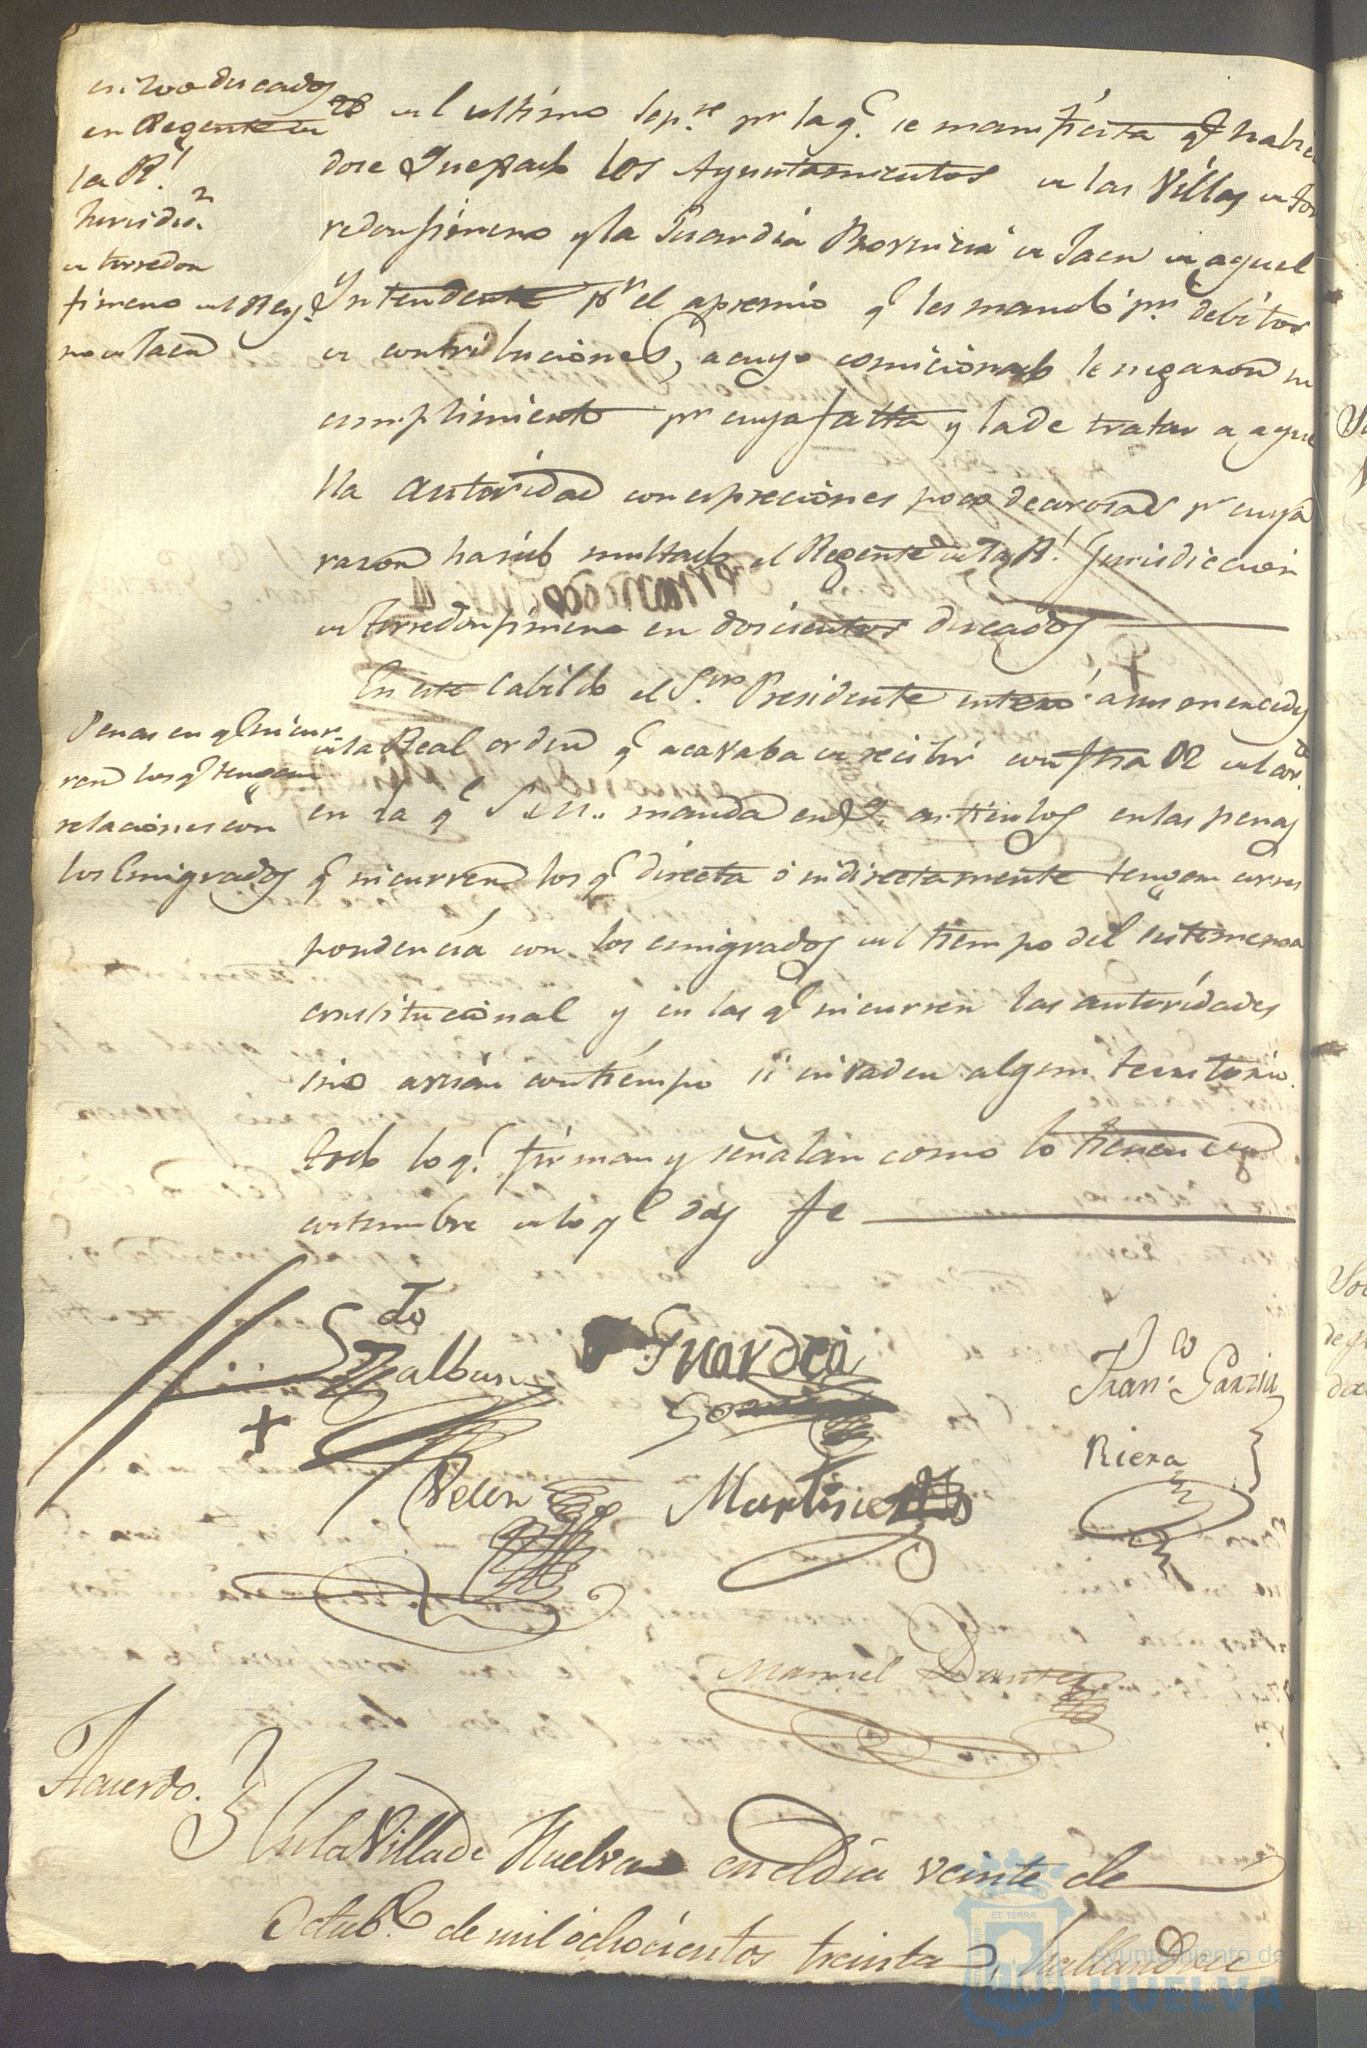 en 200 ducados
en Regente de
la Rl.
Jurisdion.
de torredon
ximeno en el Rey
no de Jaen
28 del ultimo Sepre. pr. la q. se manifiesta q. habien
dose Quexado los Ayuntamientos de las Villas de Tor
redonximeno y la Guardia Provincia de Jaen de aquel
Yntendente pr. el apremio q. les mandó pr. debitos
de contribuciones, a cuyo comicionado le negaron su
cumplimiento pr. cuya falta y la de tratar a aque
lla autoridad con espreciones poco decorosas pr. cuya
razon ha sido multado el Regente de la Rl. Jurisdiccion
de Torredonximeno en doscientos ducados
En este Cabildo el Sor. Presidente enteró a sus mercedes
Penas en q. incur
ren los q. tengan
relaciones con
los Emigrados
de la Real orden q. acavaba de recibir con fha 12 del corte.
en la q. S. M. manda en artículos en las penas
q. incurren los q. directa ó indirectamente tengan corres
pondencia con los emigrados del tiempo del sistema
constitucional y en las q. incurren las autoridades
sino avisan con tiempo si invaden algun territorio.
todo lo q. firman y señalan como lo tienen de
costumbre de lo q. doy fe
Villalban
Guardia
Franco. Garzia
Gomez
Riera
Velen
Martinez
Manuel Dantes
Acuerdo.
En la Villa de Huelva en el dia veinte de
Octube. de mil ochocientos treinta, hallandose
ET TERRÆ
Ayuntamiento de
HUELVA